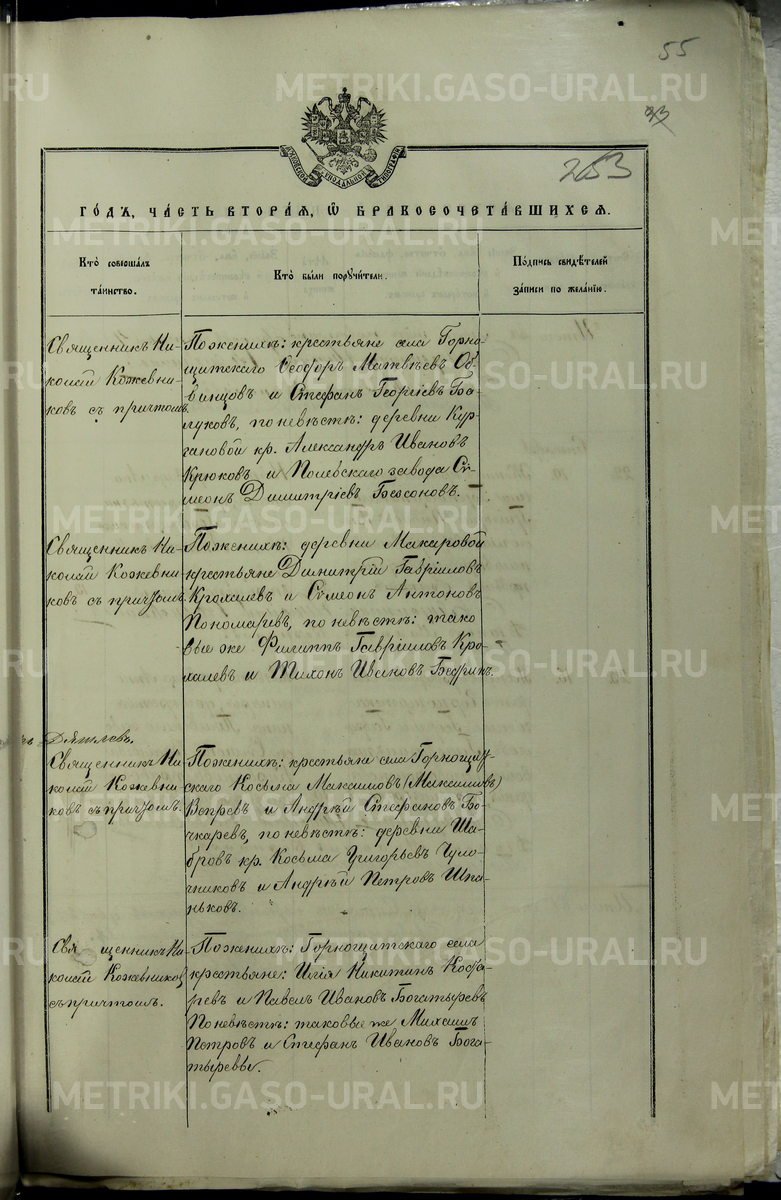 55
33
253
МОСКОВСКОЙ СѴНОДАЛЬНОЙ ТИПОГРАФІИ
ГО́ДЪ, ЧА́СТЬ ВТОРА́Ѧ, Ѡ҆ БРАКОСОЧЕТА́ВШИХСѦ.
Кто̀ соверша́лъ
та́инство.
Кто̀ бы́ли порꙋчи́тели.
По́дпись свидѣ́телей
за́писи по жела́нїю.
Священникъ Ни-
колай Кожевни-
ковъ съ причтомъ.
По женихѣ: крестьяне села Горно-
щитскаго Ѳеодоръ Матвѣевъ Об-
винцовъ и Стефанъ Георгіевъ Ба-
луковъ, по невѣстѣ: деревни Кур-
гановой кр. Александръ Ивановъ
Крюковъ и Полевскаго завода Сѵ-
меонъ Димитріевъ Безсоновъ.
Священникъ Ни-
колай Кожевни-
ковъ съ причтомъ.
По женихѣ: деревни Макаровой
крестьяне Димитрій Гавріиловъ
Крохалевъ и Сѵмеонъ Антоновъ
Пономаревъ, по невѣстѣ: тако
вые же Филиппъ Гавріиловъ Кро-
халевъ и Тихонъ Ивановъ Бедринъ.
Дятлевъ.
Священникъ Ни
колай Кожевни-
ковъ съ причтомъ.
По женихѣ: крестьяне села Горнощит-
скаго Косьма Максимовъ (Максимовъ)
Вепревъ и Андрей Стефановъ Бо-
чкаревъ, по невѣстѣ: деревни Ша-
бровъ кр. Косьма Григорьевъ Чуло-
чниковъ и Андрей Петровъ Шпа-
ньковъ.
Священникъ Ни
колай Кожевниковъ
съ причтомъ.
По женихѣ: Горнощитскаго села
крестьяне: Илія Никитинъ
и Павелъ Ивановъ Богатыревъ
По невѣстѣ: таковые же Михаилъ
Петровъ и Стефанъ Ивановъ Бога-
тыревы.
METRIKI.GASO-URAL.RU